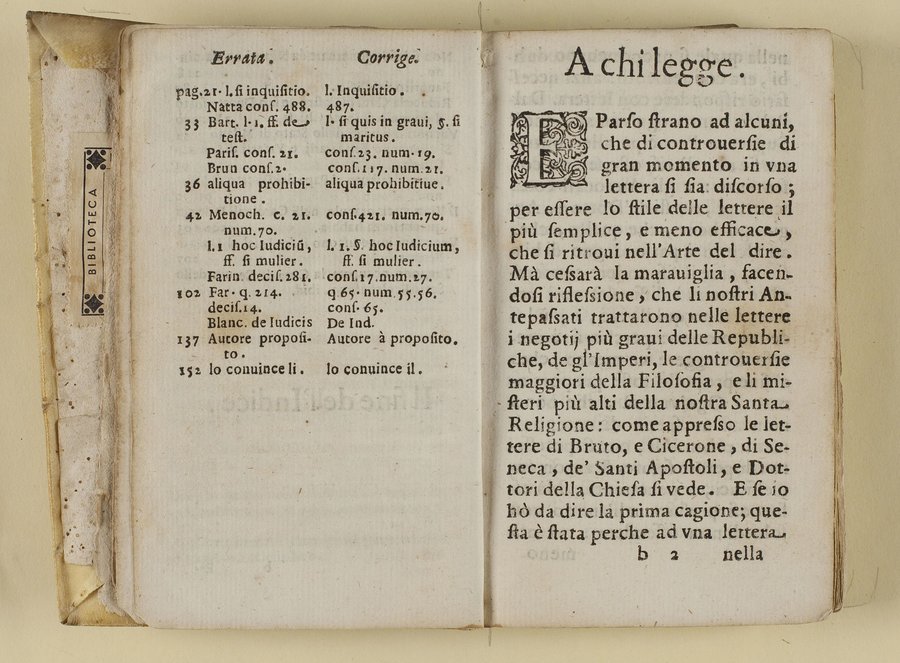 BIBLIOTECA
Errata. Corrige.
pag.21. l. ſi inquiſitio. l. Inquiſitio.
Natta conſ. 488. 487.
33 Bart. l. 1. ff. de l. ſi quis in graui, §. ſi
teſt. maritus.
Pariſ. conſ. 21. conſ. 23. num. 19.
Brun conſ. 2. conſ. 117. num. 21.
36 aliqua prohibi- aliqua prohibitiue.
tione.
42 Menoch. c. 21. conſ. 421. num. 70.
num. 70.
l. 1 hoc Iudiciũ, l. 1. §. hoc Iudicium,
ff. ſi mulier. ff. ſi mulier.
Farin. deciſ. 281. conſ. 17. num. 27.
102 Far. q. 214. q 65. num 55. 56.
deciſ. 14. conſ. 65.
Blanc. de Iudicis De Ind.
137 Autore propoſi- Autore à propoſito.
to.
152 lo conuince li. lo conuince il.
A chi legge.
E Parſo ſtrano ad alcuni,
che di controuerſie di
gran momento in vna
lettera ſi ſia diſcorſo;
per eſſere lo ſtile delle lettere il
più ſemplice, e meno efficace,
che ſi ritroui nell'Arte del dire.
Mà ceſſarà la marauiglia, facen-
doſi rifleſsione, che li noſtri An-
tepaſſati trattarono nelle lettere
i negotij più graui delle Republi-
che, de gl'Imperi, le controuerſie
maggiori della Filoſofia, e li mi-
ſteri più alti della noſtra Santa
Religione: come appreſſo le let-
tere di Bruto, e Cicerone, di Se-
neca, de' Santi Apoſtoli, e Dot-
tori della Chieſa ſi vede. E ſe io
hò da dire la prima cagione; que-
ſta è ſtata perche ad vna lettera
b 2 nella